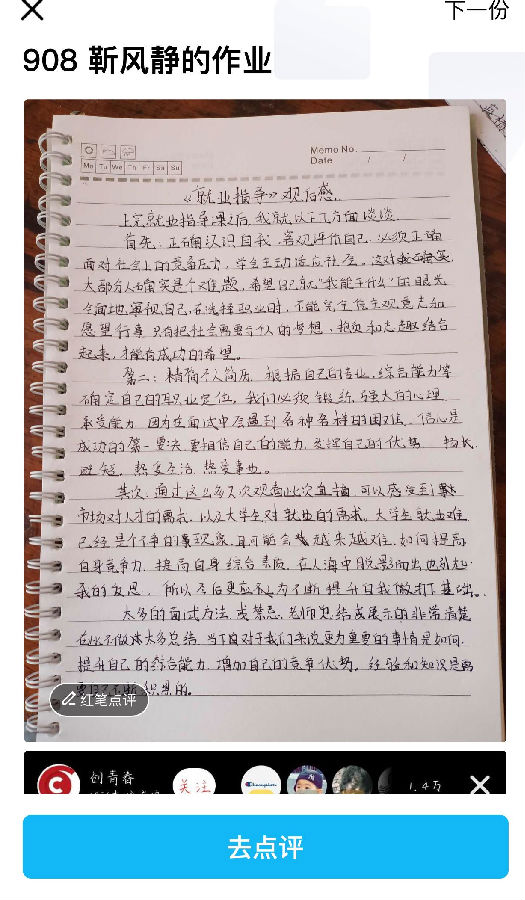 下一份
908 靳风静的作业
Memo No.
Date / /
Mo Tu We Th Fr Sa Su
《就业指导》观后感
上完就业指导课之后,我就以三个方面谈谈
首先:正确认识自我,客观评价自己,必须正确
面对社会上的竞争压力,学会主动适应社会。这对
大部分人确实是个难题,希望自己就"我能干什么"的眼光
全面地审视自己,在选择职业时,不能完全信主观意志和
愿望行事,只有把社会需要与个人的梦想、抱负和志趣结合
起来,才能有成功的希望。
第二:精简个人简历,根据自己的专业,综合能力等
确定自己的职业定位,我们必须锻练强大的心理
承受能力,因为在面试中会遇到各种各样的困难,信心是
成功的第一要决,要相信自己的能力,发挥自己的优势,扬长
避短,热爱生活,热爱事业。
其次,通过这么多次观看此次直播,可以感受到
市场对人才的需求,以及大学生对就业的需求。大学生就业难
已经是个不争的现象,且可能会越来越难,如何提高
自身竞争力,提高自身综合素质,在人海中脱影而出也引起
我的反思,所以今后更应不断提升自我做打下基础。
太多的面试方法,或禁忌,老师总结或展示的非常清楚
在此不做太多总结,当下对于我们来说更为重要的事情是如何
提升自己的综合能力,增加自己的竞争优势,经验和知识是需
要自己不断积累的。
红笔点评
创青春
关注
Champion
1.4万
去点评